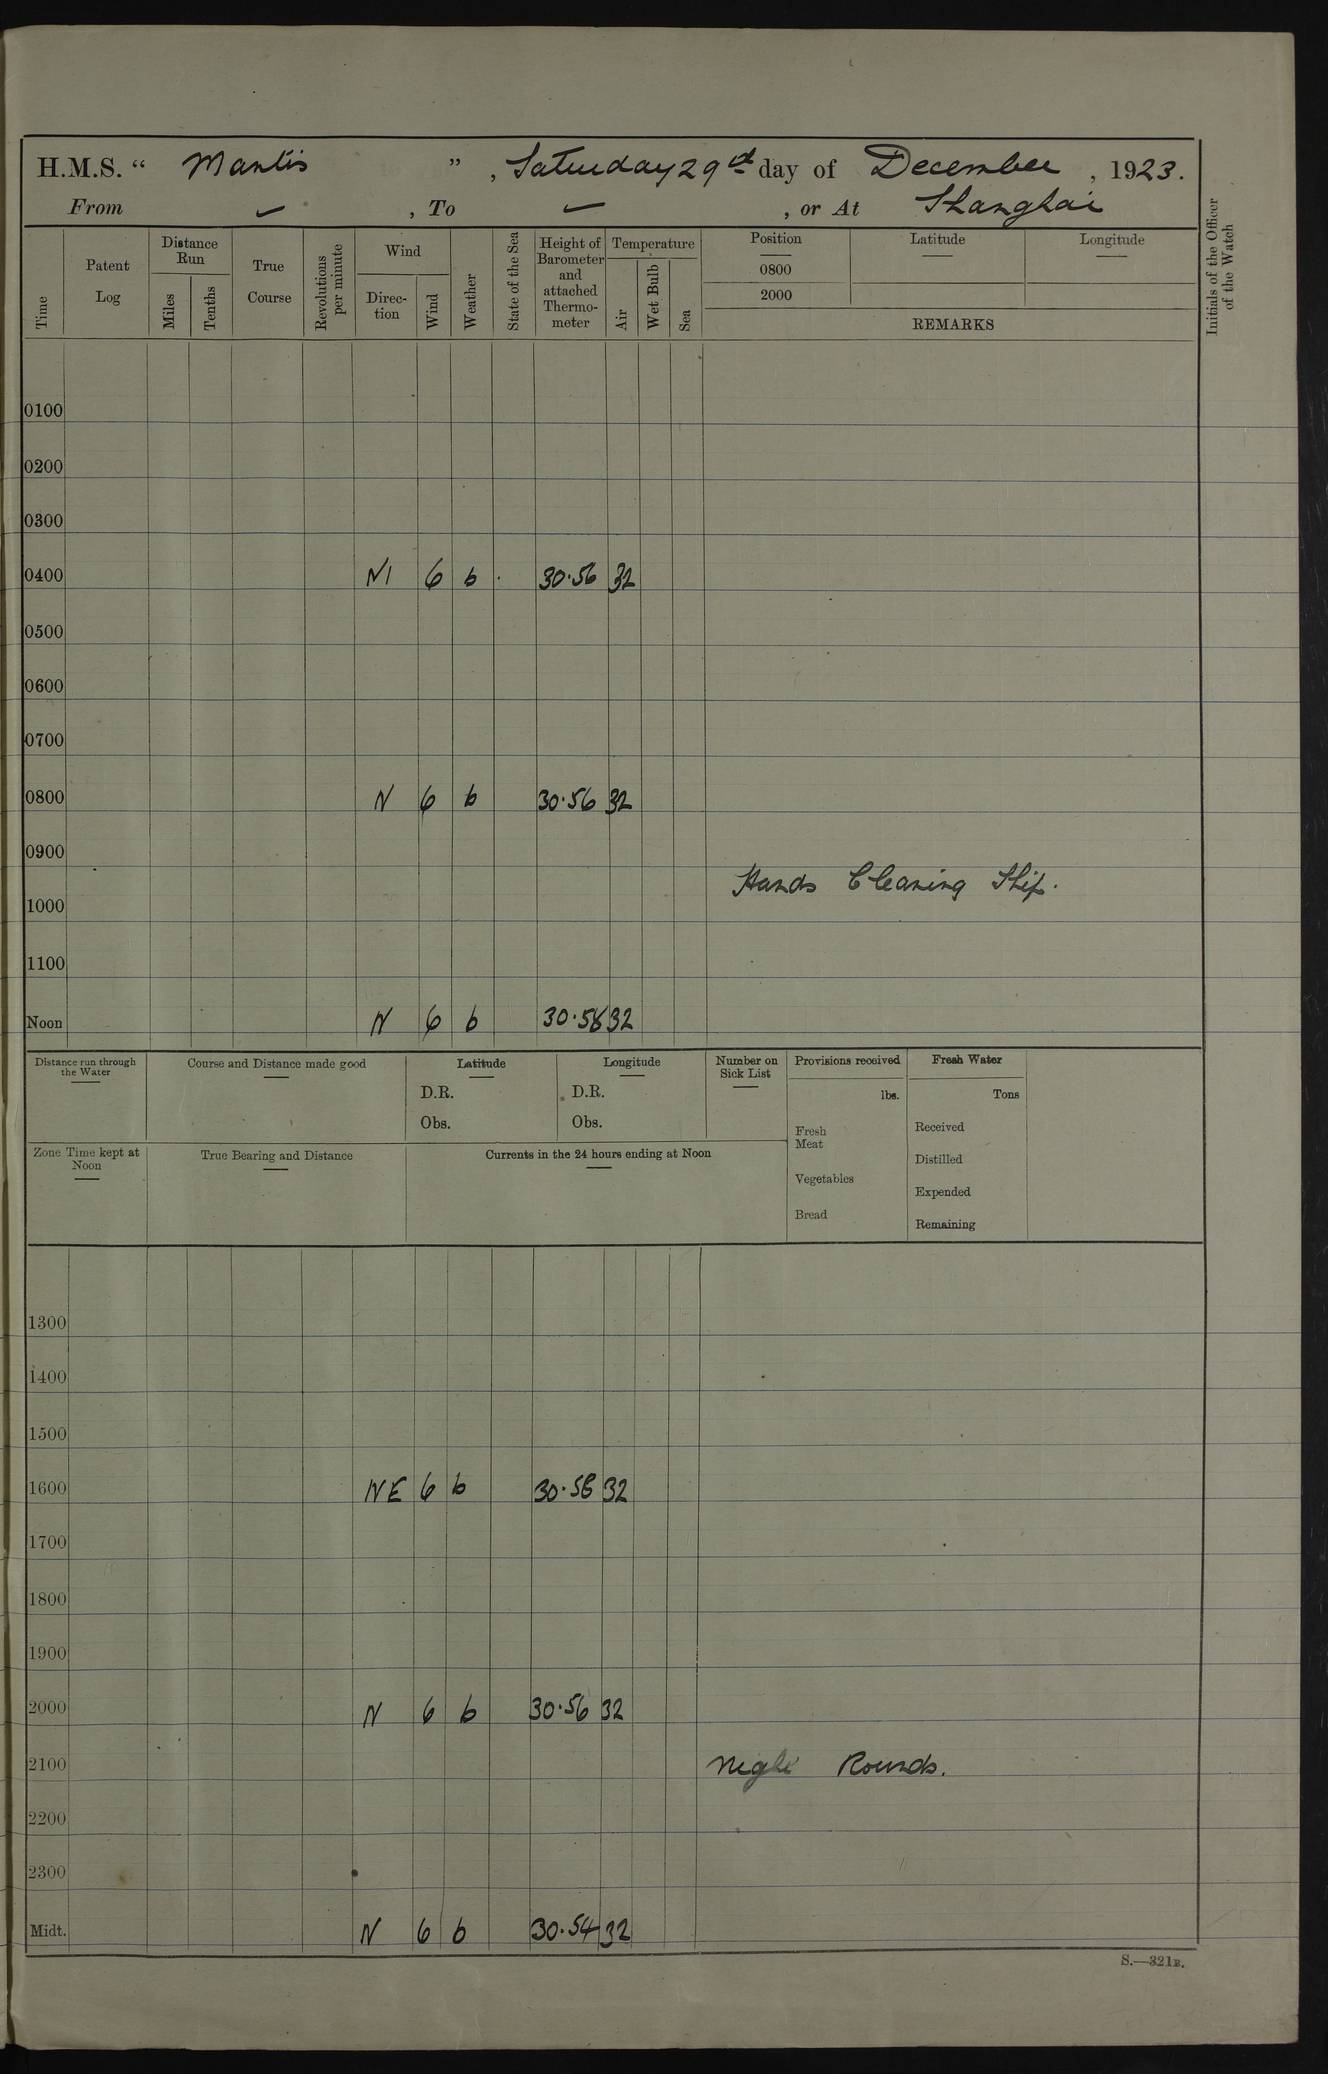 H.M.S. “ Mantis ” , Saturday 29th day of December , 1923.
From ✓ , To — , or At Shanghai
Time
Patent Log
Distance Run
Miles
Tenths
True Course
Revolutions per minute
Wind
Direc-tion
Wind
Weather
State of the Sea
Height of Barometer and attached Thermo-meter
Temperature
Air
Wet Bulb
Sea
Position
0800
2000
Latitude
Longitude
REMARKS
Initials of the Officer of the Watch
0100
0200
0300
0400 N1 6 b 30·56 32
0500
0600
0700
0800 N 6 b 30·56 32
0900
Hands Cleaning Ship.
1000
1100
Noon N 6 b 30·58 32
Distance run through the Water
Course and Distance made good
Latitude
D.R.
Obs.
Longitude
D.R.
Obs.
Number on Sick List
Provisions received
lbs.
Fresh Meat
Vegetables
Bread
Fresh Water
Tons
Received
Distilled
Expended
Remaining
Zone Time kept at Noon
True Bearing and Distance
Currents in the 24 hours ending at Noon
1300
1400
1500
1600 NE 6 b 30·58 32
1700
1800
1900
2000 N 6 b 30·56 32
2100 Night Rounds.
2200
2300
Midt. N 6 b 30·54 32
S.—321B.